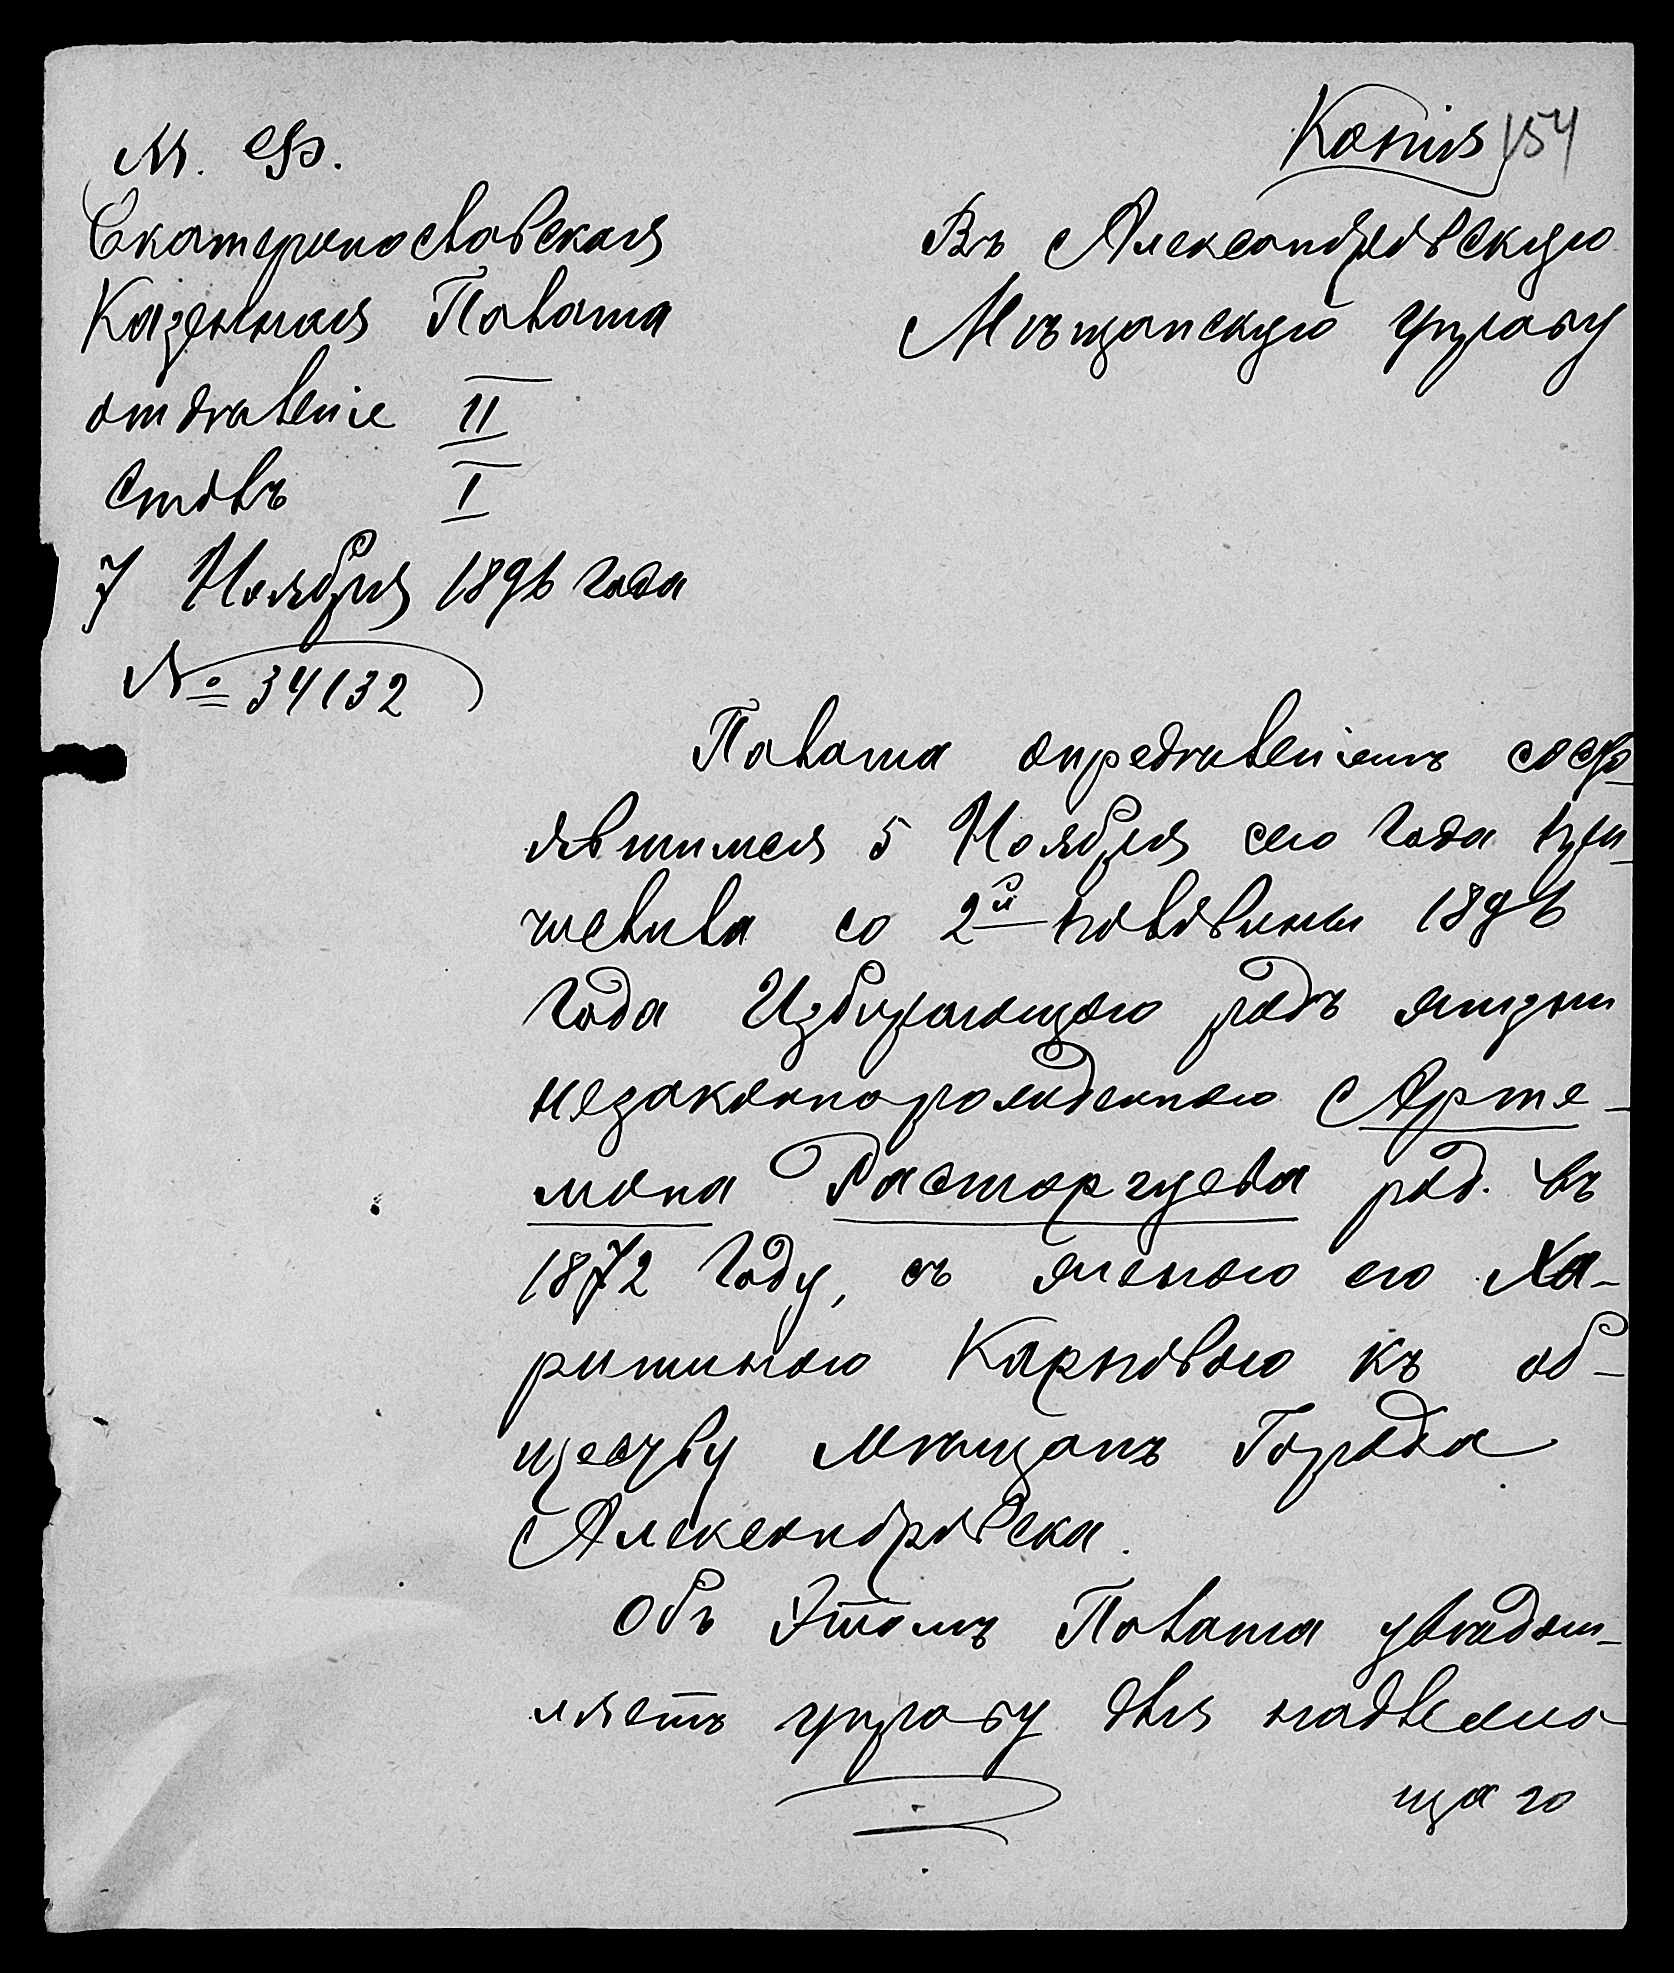 Копія 154
М. Ф.
Екатеринославская
Казенная Палата
отдѣленіе II
столъ I
7 Ноября 1896 года
№ 34132
Въ Александровскую
Мѣщанскую управу
Палата опредѣленіемъ состо-
явшимся 5 Ноября сего года при-
числила со 2й половины 1896
года Избирающаго родъ жизни
незаконнорожденнаго Арте-
мона Расторгуева род. въ
1872 Году, съ женою его Ха-
ритиною Карповою къ об-
ществу мѣщанъ Города
Александровска.
Объ этомъ Палата увѣдом-
ляетъ управу для надлежа-
щаго